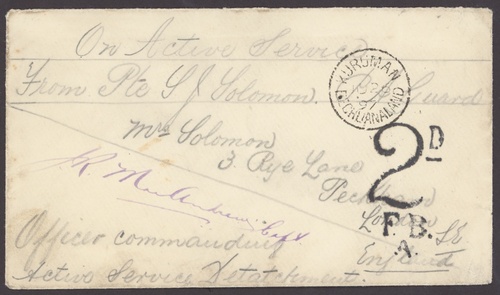 On Active Service
From Pte S J Solomon. Guard
KURUMAN
97
BECHUANALAND
Mrs Solomon
3. Rye Lane
Peckham
London SE
England
2D
F.B.
A.
Capt
Officer commanding
Active Service Detatchment.